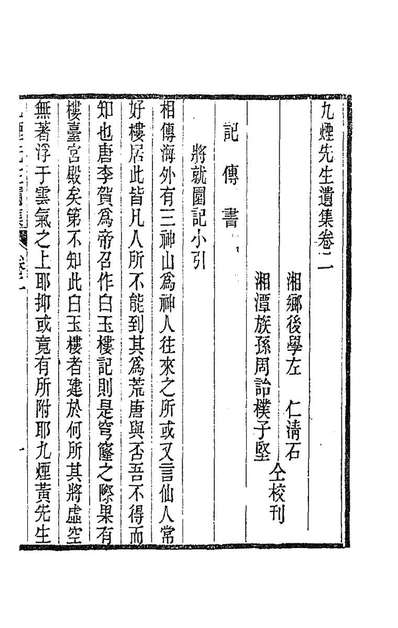 九煙先生遺集卷二
湘鄉後學左　仁清石
湘潭族孫周詒樸子堅
仝校刊
記傳書
將就園記小引
相傳海外有三神山爲神人往來之所或又言仙人常
好樓居此皆凡人所不能到其爲荒唐與否吾不得而
知也唐李賀爲帝召作白玉樓記則是穹窿之際果有
樓臺宮殿矣第不知此白玉樓者建於何所其將虛空
無著浮于雲氣之上耶抑或竟有所附耶九煙黃先生